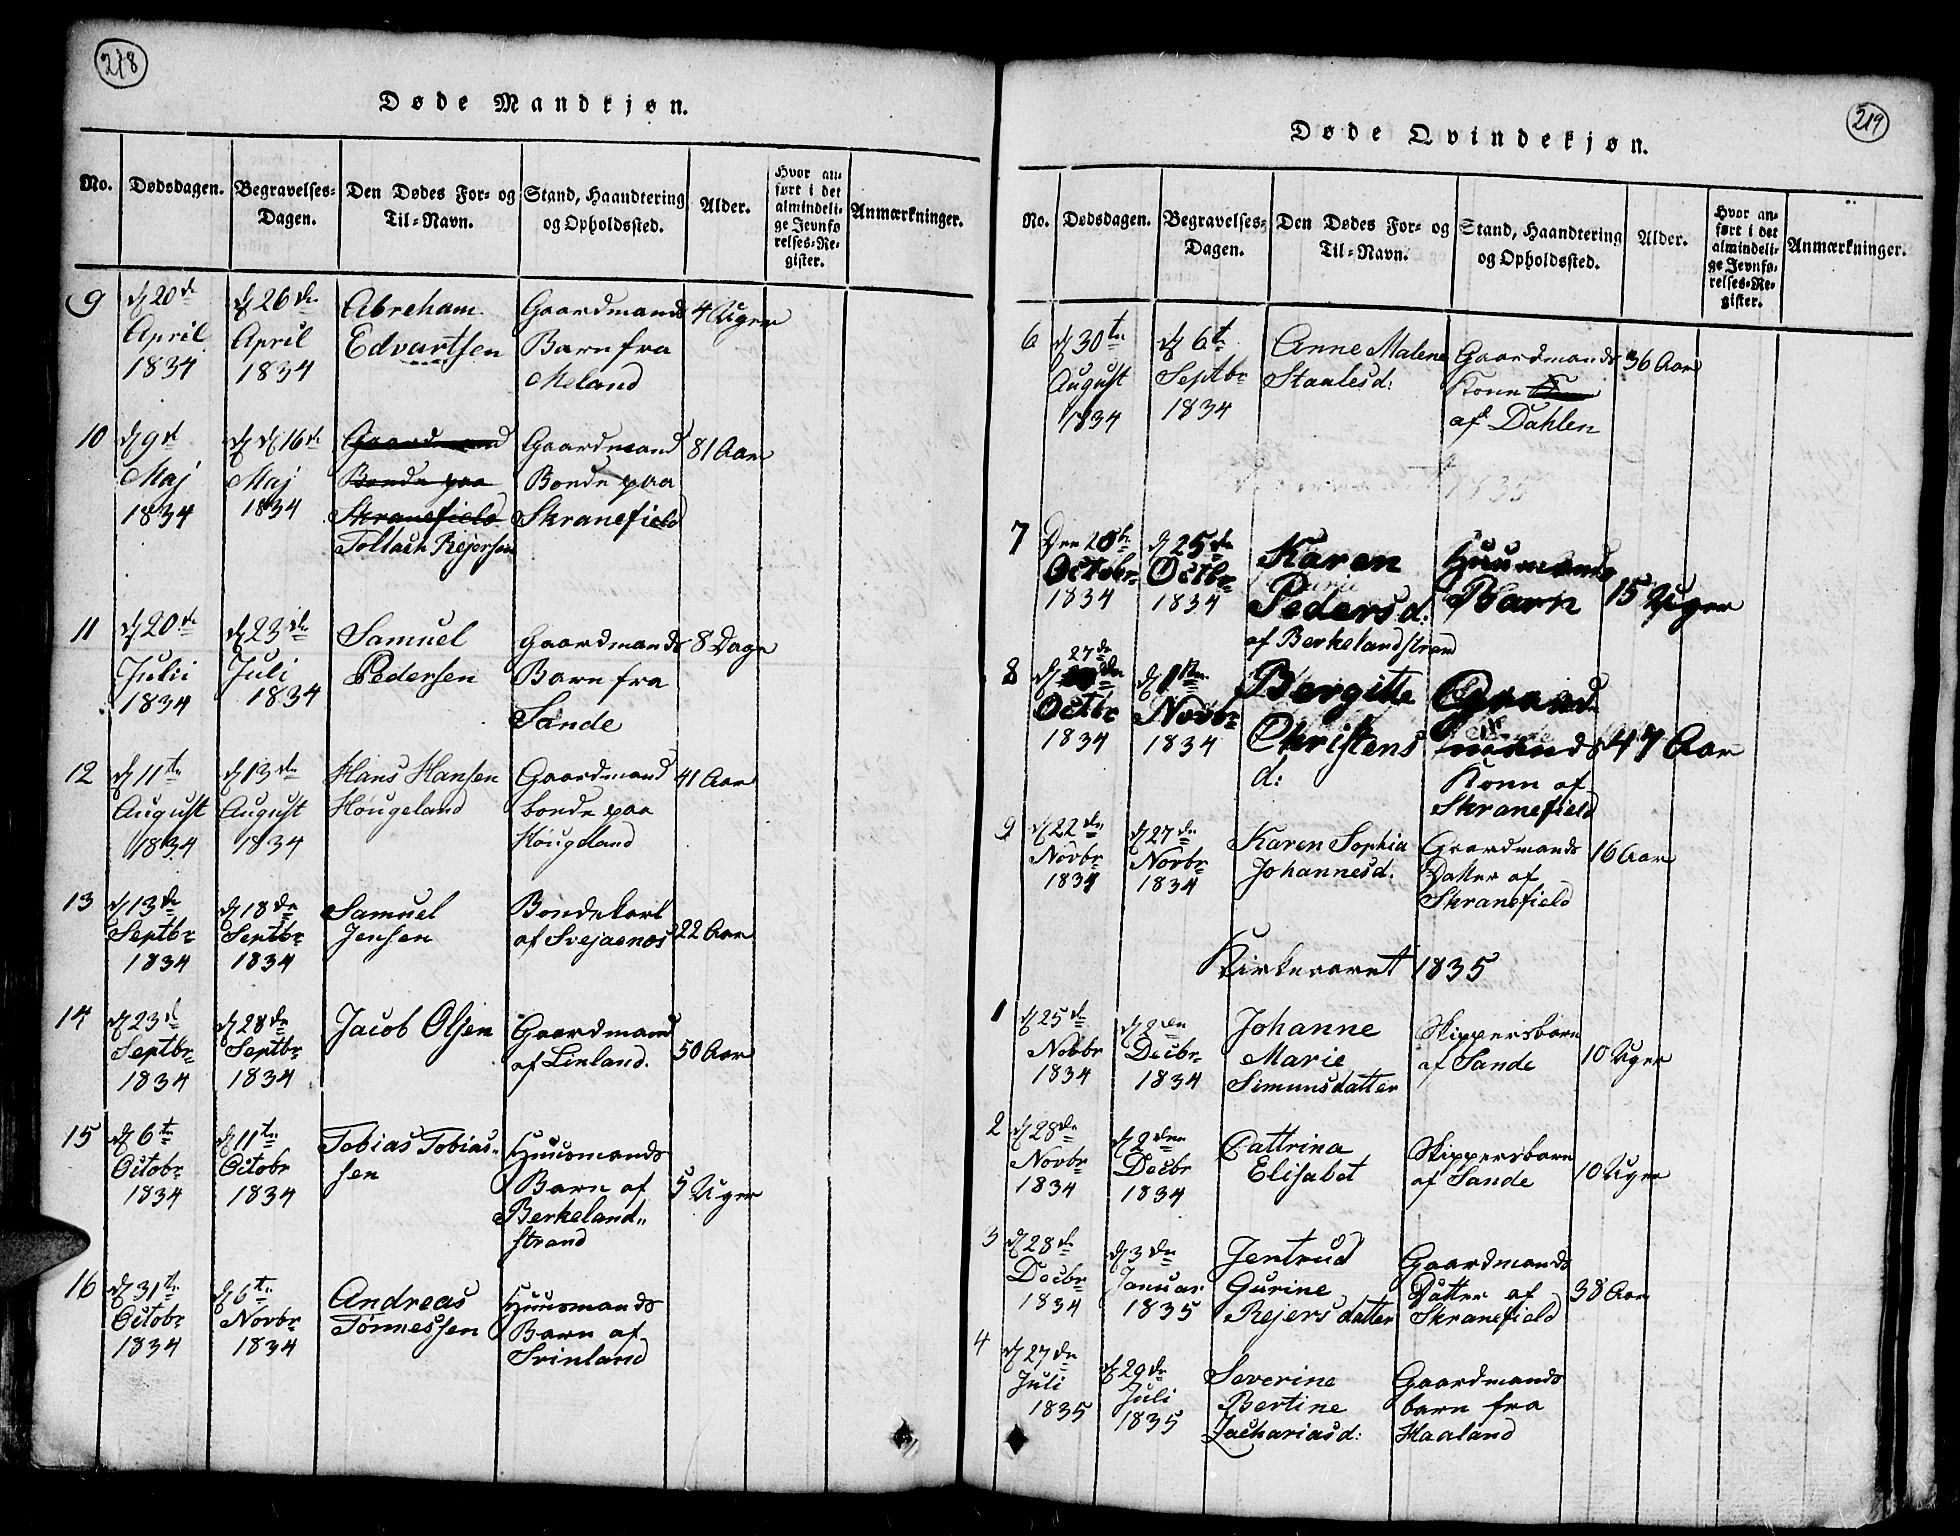 218
Døde Mandkjøn.
No. Dødsdagen. Begravelses-Dagen. Den Dødes For- og Til-Navn. Stand, Haandtering og Opholdssted. Alder. Hvor anført i det almindelige Jevnførelses-Register. Anmærkninger.
9 d 20de April 1834 d 26de April 1834 Abreham Edvartsen Gaardmands Barn fra Meland 4 Uger
10 d 9de Maj 1834 d d 16de Maj 1834 Gaardmand Bonde paa Skranefield Tollach Rejersen Gaardmand Bonde paa Skranefield 81 Aar
11 d 20de Julii 1834 d 23de Juli 1834 Samuel Pedersen Gaardmands Barn fra Sande 8 Dage
12 d 11te August 1834 d 13de August 1834 Hans Hansen Høugeland Gaardmand bonde paa Høugeland 41 Aar
13 d 13de Septbr 1834 d 18de Septbr 1834 Samuel Jensen Bondekarl af Svejaenæs 22 Aar
14 d 23de Septbr 1834 d 28de Septbr 1834 Jacob Olsen Gaardmand af Linland. 50 Aar
15 d 6te Octobr 1834 d 11te Octobr 1834 Tobias Tobias-sen Huusmands Barn af Berkeland-strand 5 Uger
16 d 31te Octobr 1834 d 6te Novbr 1834 Andreas Tønnessen Huusmands Barn af Svinland
219
Døde Qvindekjøn.
No. Dødsdagen. Begravelses-Dagen. Den Dødes For- og Til-Navn. Stand, Haandtering og Opholdssted. Alder. Hvor anført i det almindelige Jevnførelses-Register. Anmærkninger.
6 d 30te August 1834 d 6te Septbr 1834 Anne Malene Staalesd: Gaardmands Kone af Dahlen 36 Aar
7 Den 20de Octobr 1834 d 25de Octbr 1834 Karen Pedersd: af Berkelandstrand Huusmands Barn 15 Uger
8 27de d Octbr 1834 d 1ste Novbr 1834 Bergitte Christensd: Gaardmands Konn af Skranefield 47 Aar
9 d 22de Novbr 1834 d 27de Novbr 1834 Karen Sophia Johannesd. Gaardmands Datter af Skranefield 16 Aar
Kirkeaaret 1835
1 d 25de Novbr 1834 d 2den Decbr 1834 Johanne Marie Simunsdatter Skippersbarn af Sande 10 Uger
2 d 28de Novbr 1834 d 2den Decbr 1834 Cattrina Elisabet Skippersbarn af Sande 10 Uger
3 d 28de Decbr 1834 d 3de Januar 1835 Jertrud Gurine Rejersdatter Gaardmands Datter af Skranefield 38 Aar
4 d 27de Juli 1835 d 29de Juli 1835 Severine Bertine Zachariasd: Gaardmands barn fra Haaland